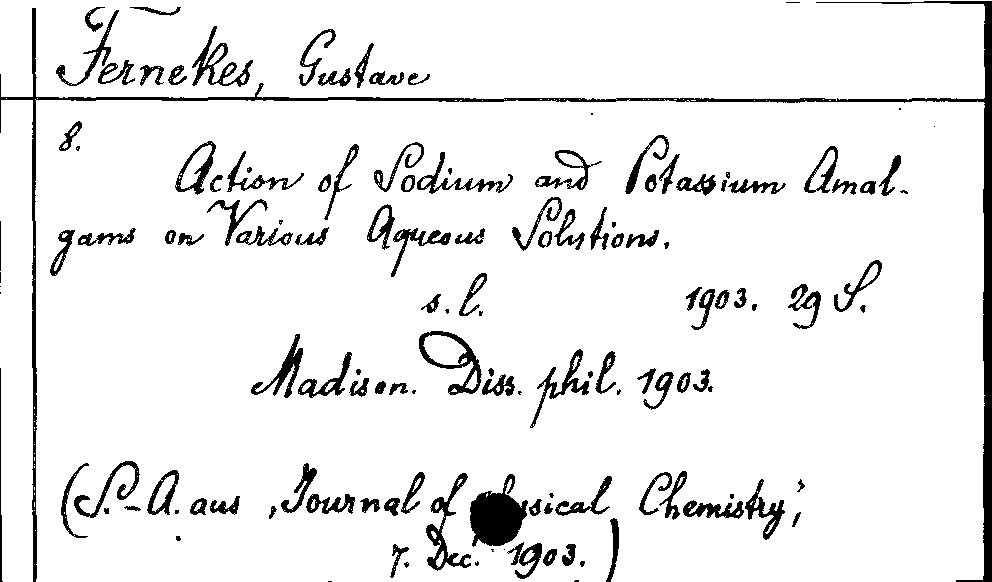 Fernekes, Gustave
8.
Action of Sodium and Potassium Amal-
gams on Various Aqueous Solutions.
s. l. 1903. 29 S.
Madison. Diss. phil. 1903.
(S.-A. aus ,Journal of Physical Chemistry,'
7. Dec. 1903.)